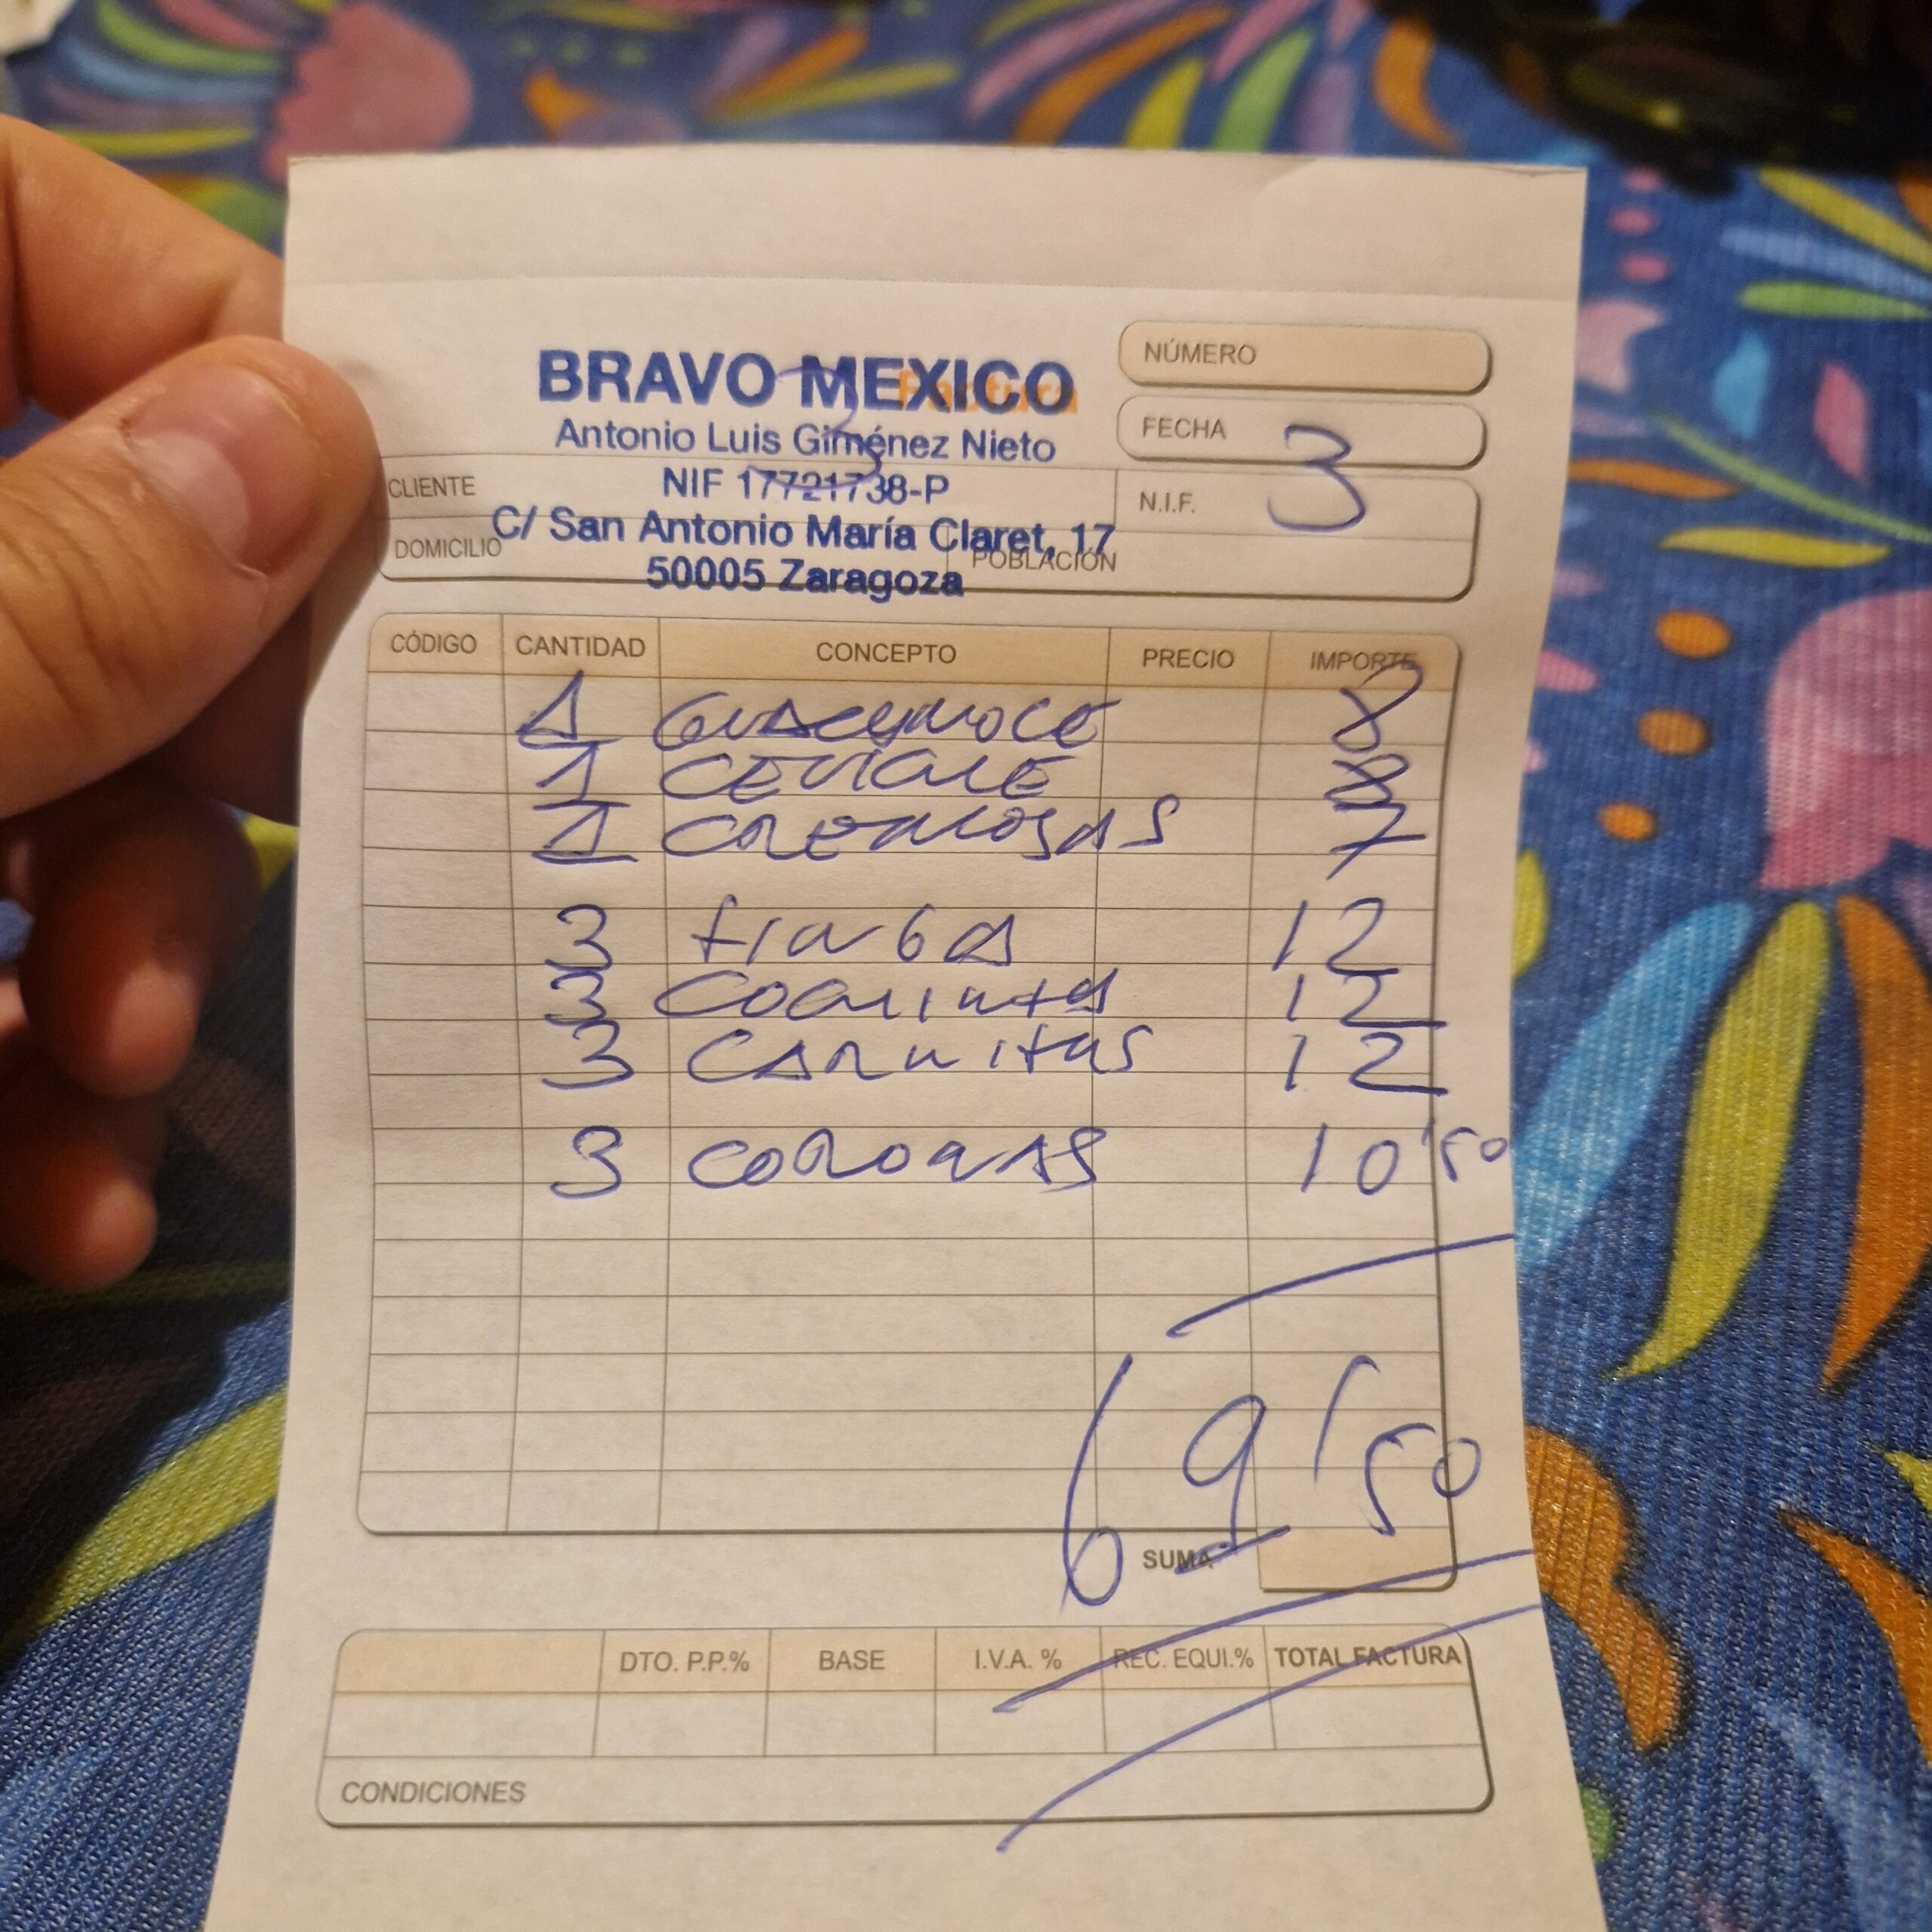 BRAVO MEXICO
Factura
Antonio Luis Giménez Nieto
NIF 17721738-P
C/ San Antonio María Claret, 17
50005 Zaragoza
NÚMERO
FECHA 3
CLIENTE
N.I.F.
DOMICILIO
POBLACIÓN
CÓDIGO CANTIDAD CONCEPTO PRECIO IMPORTE
1 GUACAMOLE 8
1 CEVICHE 8
1 CREMOSAS 7
3 tinga 12
3 COCHINITA 12
3 CARNITAS 12
3 CORONAS 10'50
69'50
SUMA
DTO. P.P.% BASE I.V.A. % REC. EQUI.% TOTAL FACTURA
CONDICIONES